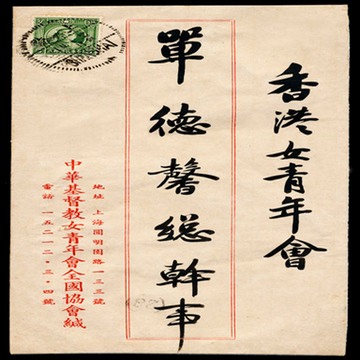 香港女青年會
單德馨總幹事
地址 上海圓明園路一三三號
中華基督教女青年會全國協會緘
電話 一五二一二·三·四號